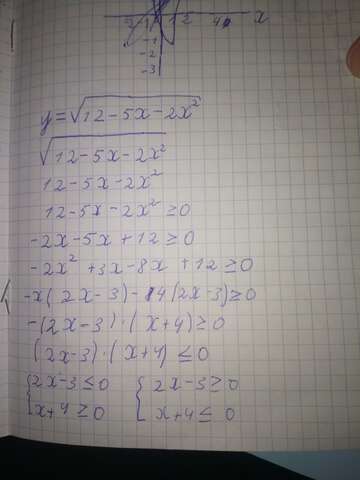 -1 1 2 4 x
-1
-2
-3
y=√12-5x-2x²
√12-5x-2x²
12-5x-2x²
12-5x-2x²≥0
-2x-5x+12≥0
-2x²+3x-8x+12≥0
-x(2x-3)-4(2x-3)≥0
-(2x-3)·(x+4)≥0
(2x-3)·(x+4)≤0
{2x-3≤0 {2x-3≥0
{x+4≥0 {x+4≤0